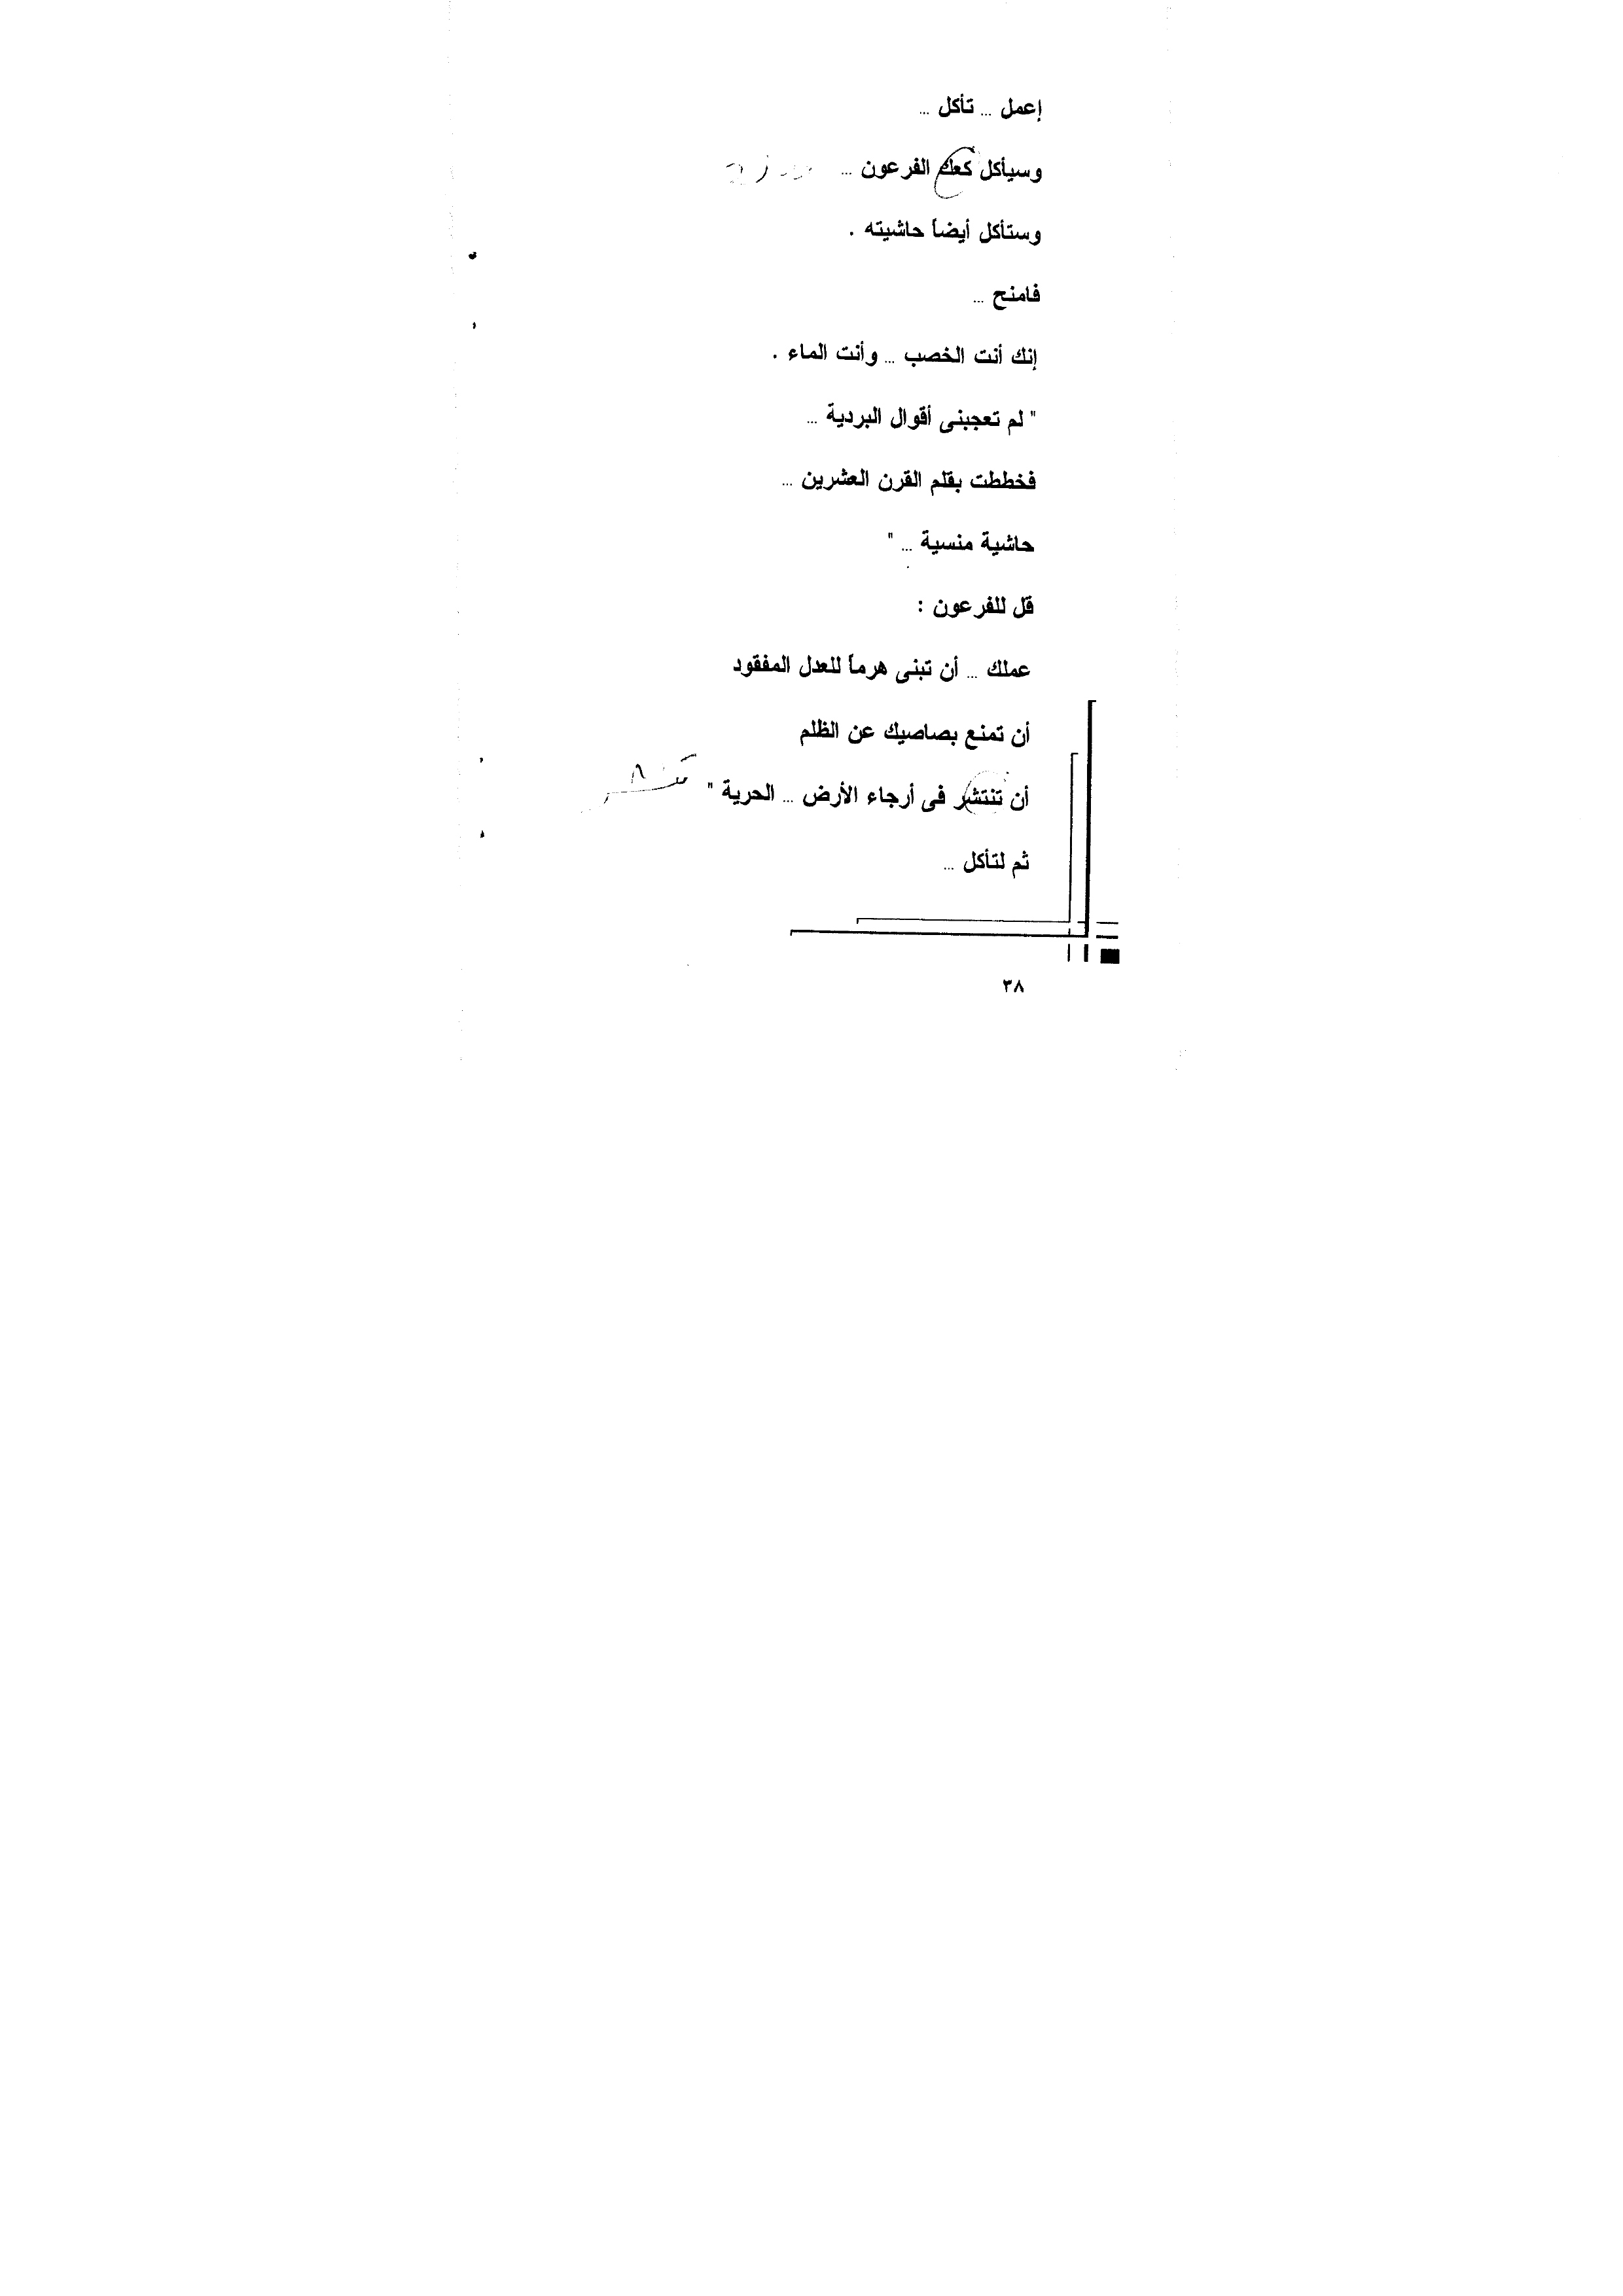 إعمل ... تأكل ...
وسيأكل كعك الفرعون ...
وستأكل أيضاً حاشيته .
فامنح ...
إنك أنت الخصب ... وأنت الماء .
" لم تعجبنى أقوال البردية ...
فخططت بقلم القرن العشرين ...
حاشية منسية ... "
قل للفرعون :
عملك ... أن تبنى هرماً للعدل المفقود
أن تمنع بصاصيك عن الظلم
أن تنتشر فى أرجاء الأرض ... الحرية "
ثم لتأكل ...
٣٨